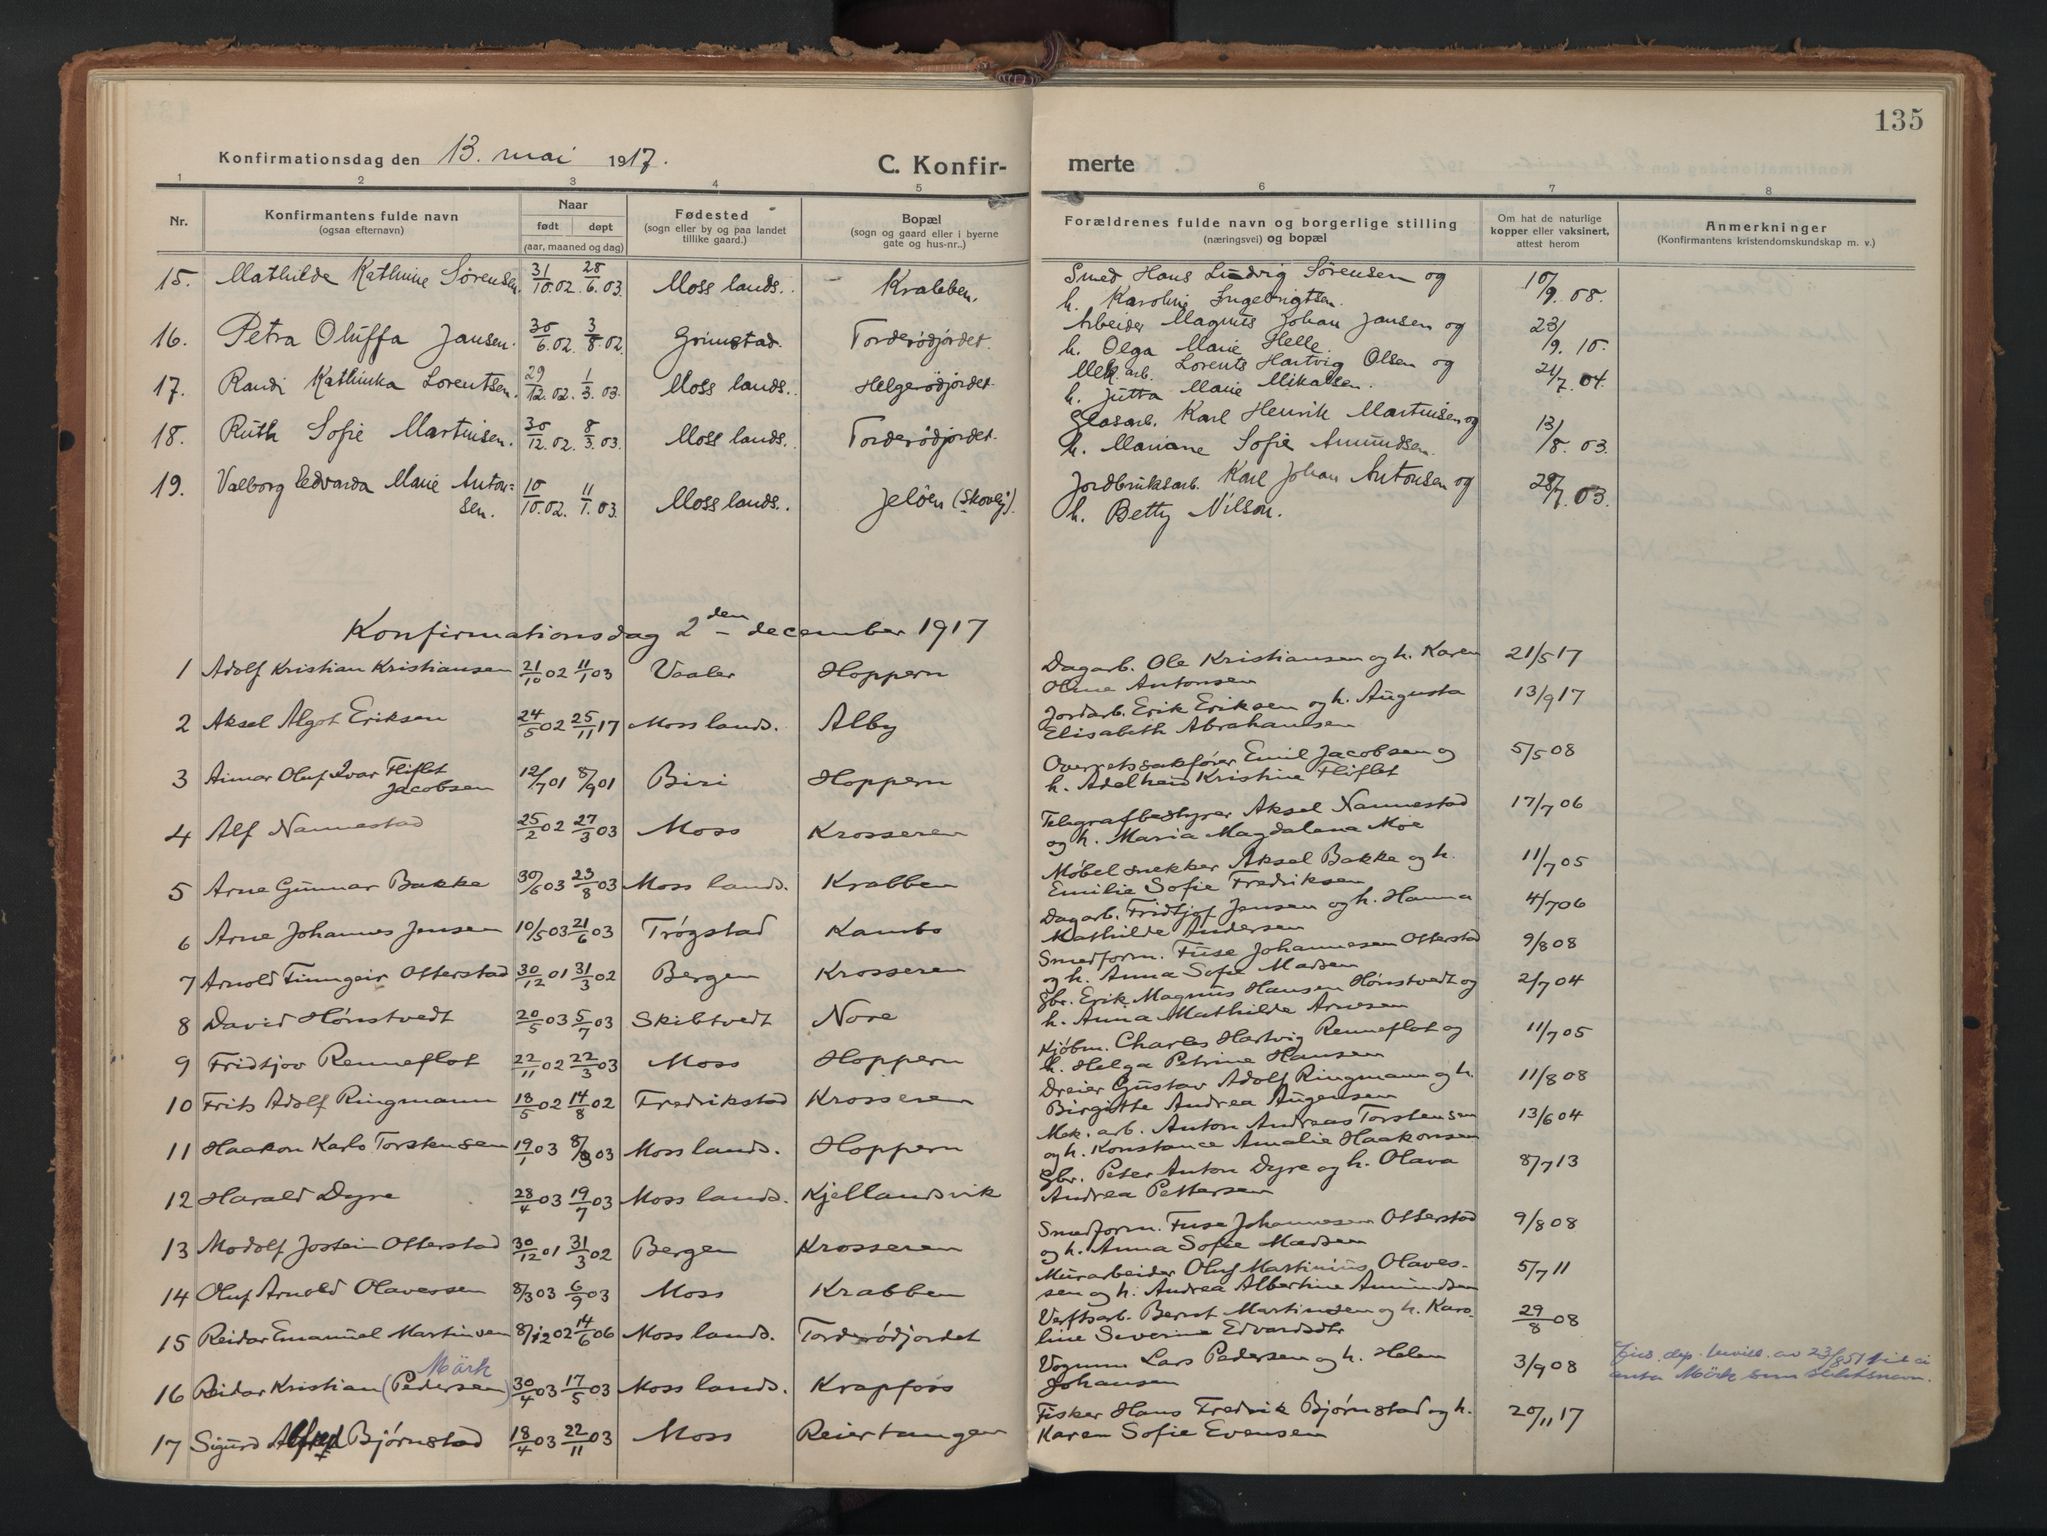 135
Konfirmationsdag den 13. mai 1917. C. Konfir- merte
1 2 3 4 5 6 7 8
Nr. Konfirmantens fulde navn (ogsaa efternavn) Naar født døpt (aar, maaned og dag) Fødested (sogn eller by og paa landet tillike gaard.) Bopæl (sogn og gaard eller i byerne gate og hus-nr..) Forældrenes fulde navn og borgerlige stilling (næringsvei) og bopæl Om hat de naturlige kopper eller vaksinert, attest herom Anmerkninger (Konfirmantens kristendomskundskap m. v.)
15. Mathilde Kathrine Sørensen. 31/10.02. 28/6.03. Moss lands.. Krabben. Smed Hans Ludvig Sørensen og 10/9.08.
h. Karoline Ingebrigtsen.
16. Petra Oluffa Jansen. 30/6.02. 3/8.02. Grimstad. Torderødjordet. Arbeider Magnus Johan Jansen og 23/9.10.
h. Olga Marie Helle.
17. Randi Kathinka Lorentsen. 29/12.02. 1/3.03. Moss lands.. Helgerødjordet. Mek. arb. Lorents Hartvig Olsen og 21/7.04.
h. Jutta Marie Mikalsen.
18. Ruth Sofie Martinsen. 30/12.02. 8/3.03. Moss lands. Torderødjordet. Glasarb. Karl Henrik Martinsen og 13/8.03.
h. Mariane Sofie Amundsen.
19. Valborg Edvarda Marie Anton= 10/10.02. 11/1.03. Moss lands.. Jeløen (Skovly). Jordbruksarb. Karl Johan Antonsen og 28/7.03.
sen. h. Betty Nilson.
Konfirmationsdag 2den december 1917
1 Adolf Kristian Kristiansen 21/10 02 11/1 03 Vaaler Hoppern Dagarb. Ole Kristiansen og h. Karen 21/5 17
Oline Antonsen
2 Aksel Algot Eriksen 24/5 02 25/11 17 Moss lands. Alby Jordarb. Erik Eriksen og h. Augusta 13/9 17
Elisabeth Abrahamsen
3 Aimar Oluf Ivar Fliflet 12/7 01 8/9 01 Biri Hoppern Overretssakfører Emil Jacobsen og 5/5 08
Jacobsen h. Adelheid Kristine Fliflet
4 Alf Nannestad 25/2 02 27/3 03 Moss Krosseren Telegrafbestyrer Aksel Nannestad 17/7 06
og h. Maria Magdalena Moe
5 Arne Gunnar Bakke 30/6 03 23/8 03 Moss lands. Krabben Møbelsnekker Aksel Bakke og h. 11/7 05
Emilie Sofie Fredriksen
6 Arne Johannes Jensen 10/5 03 21/6 03 Trøgstad Kambo Dagarb. Fridtjof Jensen og h. Hanna 4/7 06
Mathilde Andersen
7 Arnold Finngeir Otterstad 30/12 01 31/3 02 Bergen Krosseren Smedform. Fuse Johannesen Otterstad 9/8 08
og h. Anna Sofie Madsen
8 David Hønstvedt 20/5 03 5/7 03 Skibtvedt Nore Gbr. Erik Magnus Hansen Hønstvedt og 2/7 04
h. Anna Mathilde Arnesen
9 Fridtjov Renneflot 22/11 02 22/3 03 Moss Hoppern Kjøbm. Charles Hartvig Renneflot og 11/7 05
h. Helga Petrine Hansen
10 Frits Adolf Ringmann 18/5 02 14/8 02 Fredrikstad Krosseren Dreier Gustav Adolf Ringmann og h. 11/8 08
Birgitte Andrea Augensen
11 Haakon Karlo Torstensen 19/1 03 8/3 03 Moss lands. Hoppern Mek. arb. Anton Andreas Torstensen 13/6 04
og h. Konstance Amalie Haakonsen
12 Harald Dyre 28/4 03 19/7 03 Moss lands. Kjellandsvik Gbr. Peter Anton Dyre og h. Olava 8/7 13
Andrea Pettersen
13 Modolf Jostein Otterstad 30/12 01 31/3 02 Bergen Krosseren Smedform. Fuse Johannesen Otterstad 9/8 08
og h. Anna Sofie Madsen
14 Oluf Arnold Olavessen 8/3 03 6/9 03 Moss Krabben Murarbeider Oluf Martinius Olaves- 5/7 11
sen og h. Andrea Albertine Amundsen
15 Reidar Emanuel Martinsen 8/12 02 14/6 06 Moss lands. Torderødjordet Verftsarb. Bernt Martinsen og h. Karo- 29/8 08
line Severine Edvardsdtr
Märk
16 Reidar Kristian (Pedersen) 30/4 03 17/5 03 Moss lands. Krapfoss Vognm. Lars Pedersen og h. Helen 3/9 08 Jus. dep. bevill. av 23/8 51 til å
Johansen anta Märk som slektsnavn.
17 Sigurd Alfred Bjørnstad 18/4 03 22/11 03 Moss Reiertangen Fisker Hans Fredrik Bjørnstad og h. 20/11 17
Karen Sofie Evensen